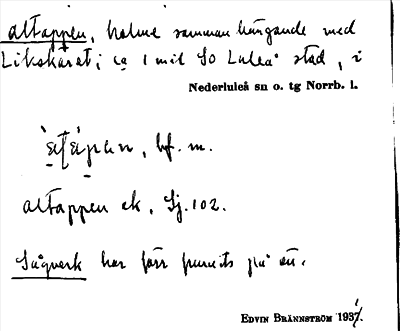 Altappen, holme sammanhängande med
Likskäret; ca 1 mil SO Luleå stad, i
Nederluleå sn o. tg Norrb. l.
bf. m.
Altappen ek. Sj. 102.
Sågverk har förr funnits på ön.
EDVIN BRÄNNSTRÖM 193